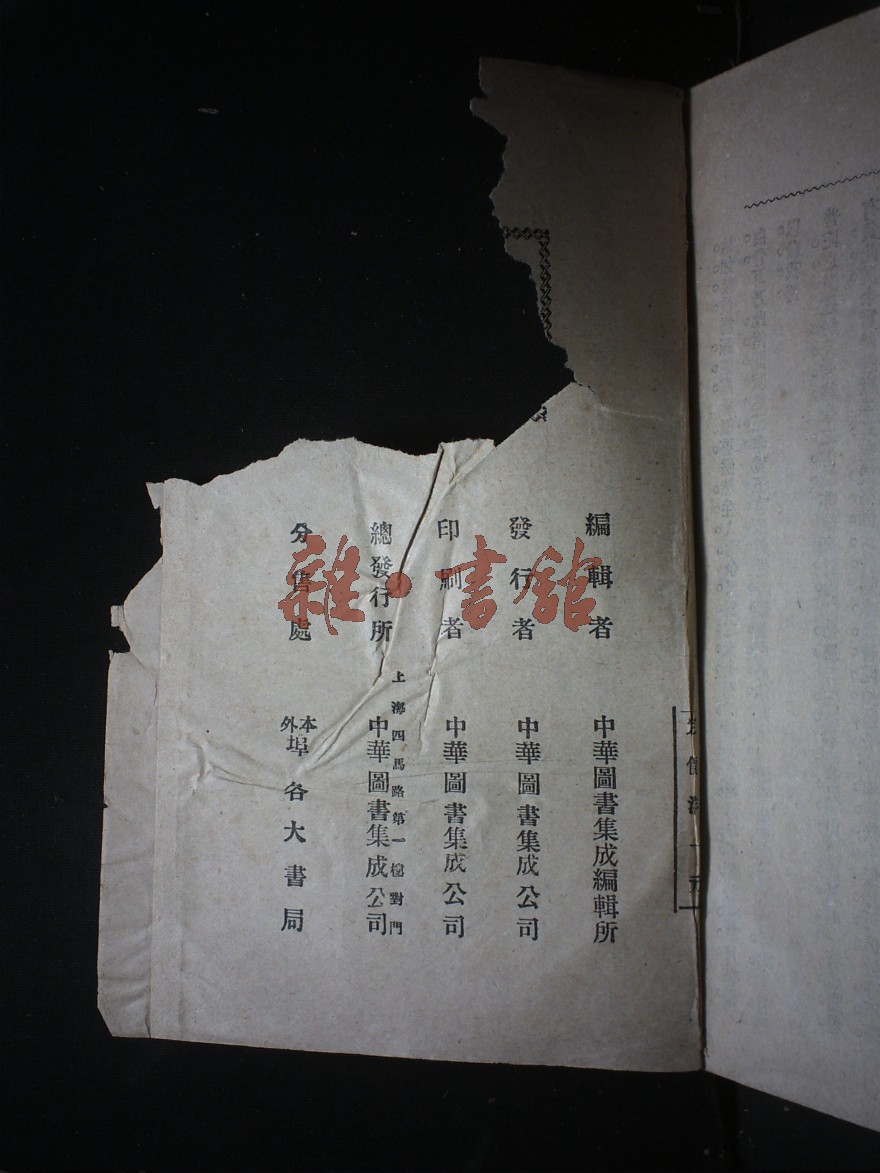 編輯者 中華圖書集成編輯所
發行者 中華圖書集成公司
印刷者 中華圖書集成公司
上海四馬路第一樓對門
總發行所 中華圖書集成公司
分售處 本外埠各大書局
雜·書館